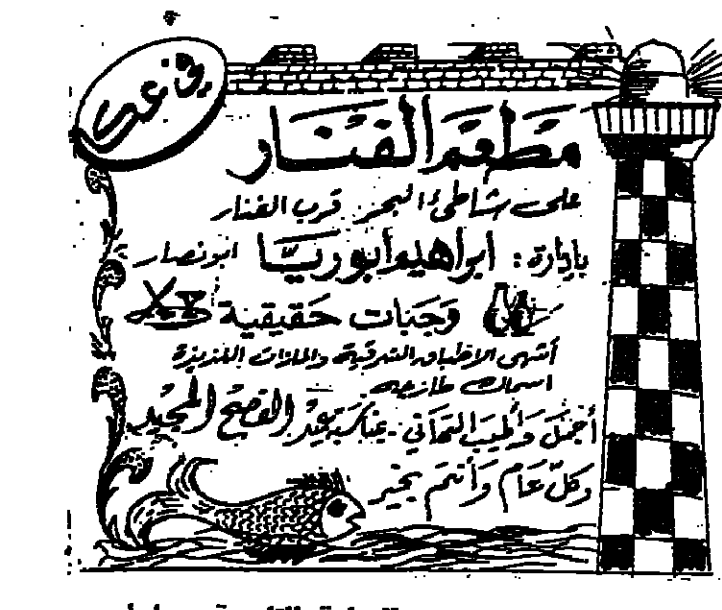 في عكا
مطعم الفنار
على شاطئ البحر قرب الفنار
بإدارة: ابراهيم أبو ريّا ابو نصار
وجبات حقيقية
أشهى الاطباق الشرقية والمازات اللذيذة
اسماك طازجه
أجمل وأطيب التهاني بمناسبة عيد الفصح المجيد
وكلّ عام وأنتم بخير